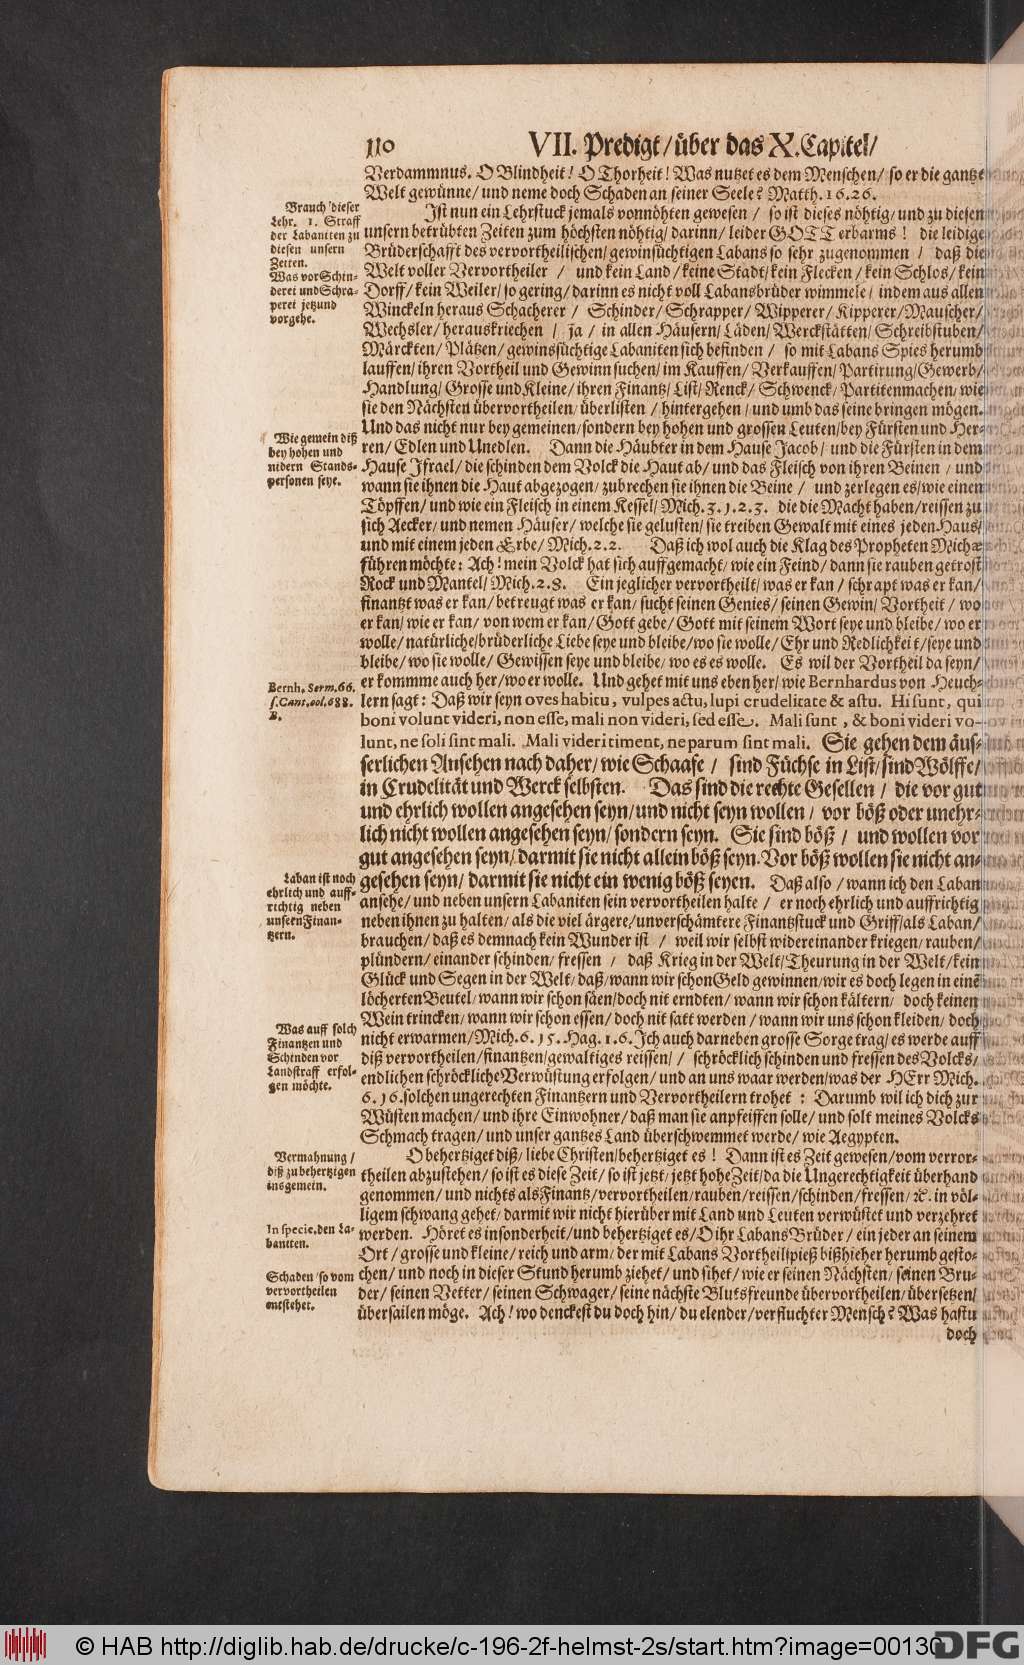 110
VII. Predigt / über das X. Capitel /
Verdammnus. O Blindheit! O Thorheit! Was nutzet es dem Menschen / so er die gantze
Welt gewünne / und neme doch Schaden an seiner Seele? Matth. 16. 26.
Brauch dieser
Lehr. 1. Straff
der Labaniten zu
diesen unsern
Zeiten.
Was vor Schin-
derei und Schra-
perei jetzund
vorgehe.
Ist nun ein Lehrstuck jemals vonnöhten gewesen / so ist dieses nöhtig / und zu diesen
unsern betrübten Zeiten zum höchsten nöhtig / darinn / leider GOTT erbarms! die leidige
Brüderschafft des vervortheilischen / gewinsüchtigen Labans so sehr zugenommen / daß die
Welt voller Vervortheiler / und kein Land / keine Stadt / kein Flecken / kein Schlos / kein
Dorff / kein Weiler / so gering / darinn es nicht voll Labansbrüder wimmele / indem aus allen
Winckeln heraus Schacherer / Schinder / Schrapper / Wipperer / Kipperer / Mauscher /
Wechsler / herauskriechen / ja / in allen Häusern / Läden / Werckstätten / Schreibstuben /
Märckten / Plätzen / gewinssüchtige Labaniten sich befinden / so mit Labans Spies herumb
lauffen / ihren Vortheil und Gewinn suchen / im Kauffen / Verkauffen / Partirung / Gewerb /
Handlung / Grosse und Kleine / ihren Finantz / List / Renck / Schwenck / Partitenmachen / wie
sie den Nächsten übervortheilen / überlisten / hintergehen / und umb das seine bringen mögen.
Wie gemein diß
bey hohen und
nidern Stands-
personen seye.
Und das nicht nur bey gemeinen / sondern bey hohen und grossen Leuten / bey Fürsten und Her-
ren / Edlen und Unedlen. Dann die Häubter in dem Hause Jacob / und die Fürsten in dem
Hause Israel / die schinden dem Volck die Haut ab / und das Fleisch von ihren Beinen / und
wann sie ihnen die Haut abgezogen / zubrechen sie ihnen die Beine / und zerlegen es / wie einen
Töpffen / und wie ein Fleisch in einem Kessel / Mich. 3. 1. 2. 3. die die Macht haben / reissen zu
sich Aecker / und nemen Häuser / welche sie gelusten / sie treiben Gewalt mit eines jeden Haus /
und mit einem jeden Erbe / Mich. 2. 2. Daß ich wol auch die Klag des Propheten Michæ
führen möchte: Ach! mein Volck hat sich auffgemacht / wie ein Feind / dann sie rauben getrost
Rock und Mantel / Mich. 2. 8. Ein jeglicher vervortheilt / was er kan / schrapt was er kan /
finantzt was er kan / betreugt was er kan / sucht seinen Genies / seinen Gewin / Vortheit / wo
er kan / wie er kan / von wem er kan / Gott gebe / Gott mit seinem Wort seye und bleibe / wo er
wolle / natürliche / brüderliche Liebe seye und bleibe / wo sie wolle / Ehr und Redlichkeit / seye und
bleibe / wo sie wolle / Gewissen seye und bleibe / wo es es wolle. Es wil der Vortheil da seyn /
er kommme auch her / wo er wolle. Und gehet mit uns eben her / wie Bernhardus von Heuch-
Bernh. Serm. 66.
s. Cant. col. 688.
B.
lern sagt: Daß wir seyn oves habitu, vulpes actu, lupi crudelitate & astu. Hi sunt, qui
boni volunt videri, non esse, mali non videri, sed esse. Mali sunt, & boni videri vo-
lunt, ne soli sint mali. Mali videri timent, ne parum sint mali. Sie gehen dem äus-
serlichen Ansehen nach daher / wie Schaafe / sind Füchse in List / sind Wölffe /
in Crudelität und Werck selbsten. Das sind die rechte Gesellen / die vor gut
und ehrlich wollen angesehen seyn / und nicht seyn wollen / vor böß oder unehr-
lich nicht wollen angesehen seyn / sondern seyn. Sie sind böß / und wollen vor
gut angesehen seyn / darmit sie nicht allein böß seyn. Vor böß wollen sie nicht an-
gesehen seyn / darmit sie nicht ein wenig böß seyen. Daß also / wann ich den Laban
Laban ist noch
ehrlich und auff-
richtig neben
unsern Finan-
tzern.
ansehe / und neben unsern Labaniten sein vervortheilen halte / er noch ehrlich und auffrichtig
neben ihnen zu halten / als die viel ärgere / unverschämtere Finantzstuck und Griff / als Laban /
brauchen / daß es demnach kein Wunder ist / weil wir selbst widereinander kriegen / rauben /
plündern / einander schinden / fressen / daß Krieg in der Welt / Theurung in der Welt / kein
Glück und Segen in der Welt / daß / wann wir schon Geld gewinnen / wir es doch legen in einē
löcherten Beutel / wann wir schon säen / doch nit erndten / wann wir schon kältern / doch keinen
Wein trincken / wann wir schon essen / doch nit satt werden / wann wir uns schon kleiden / doch
Was auff solch
Finantzen und
Schinden vor
Landstraff erfol-
gen möchte.
nicht erwarmen / Mich. 6. 15. Hag. 1. 6. Ich auch darneben grosse Sorge trag / es werde auff
diß vervortheilen / finantzen / gewaltiges reissen / / schröcklich schinden und fressen des Volcks /
endlichen schröckliche Verwüstung erfolgen / und an uns waar werden / was der HErr Mich.
6. 16. solchen ungerechten Finantzern und Vervortheilern trohet: Darumb wil ich dich zur
Wüsten machen / und ihre Einwohner / daß man sie anpfeiffen solle / und solt meines Volcks
Schmach tragen / und unser gantzes Land überschwemmet werde / wie Aegypten.
Vermahnung /
diß zu behertzigen
insgemein.
O behertziget diß / liebe Christen / behertziget es! Dann ist es Zeit gewesen / vom verror-
theilen abzustehen / so ist es diese Zeit / so ist jetzt / jetzt hohe Zeit / da die Ungerechtigkeit überhand
genommen / und nichts als Finantz / vervortheilen / rauben / reissen / schinden / fressen / ꝛc. in völ-
ligem schwang gehet / darmit wir nicht hierüber mit Land und Leuten verwüstet und verzehret
In specie. den La-
baniten.
werden. Höret es insonderheit / und behertziget es / O ihr Labans Brüder / ein jeder an seinem
Ort / grosse und kleine / reich und arm / der mit Labans Vortheilspieß bißhieher herumb gesto-
Schaden / so vom
vervortheilen
entstehet.
chen / und noch in dieser Stund herumb ziehet / und sihet / wie er seinen Nächsten / seinen Bru-
der / seinen Vetter / seinen Schwager / seine nächste Blutsfreunde übervortheilen / übersetzen /
übersailen möge. Ach! wo denckest du doch hin / du elender / verfluchter Mensch? Was hastu
doch
© HAB http://diglib.hab.de/drucke/c-196-2f-helmst-2s/start.htm?image=00130
DFG